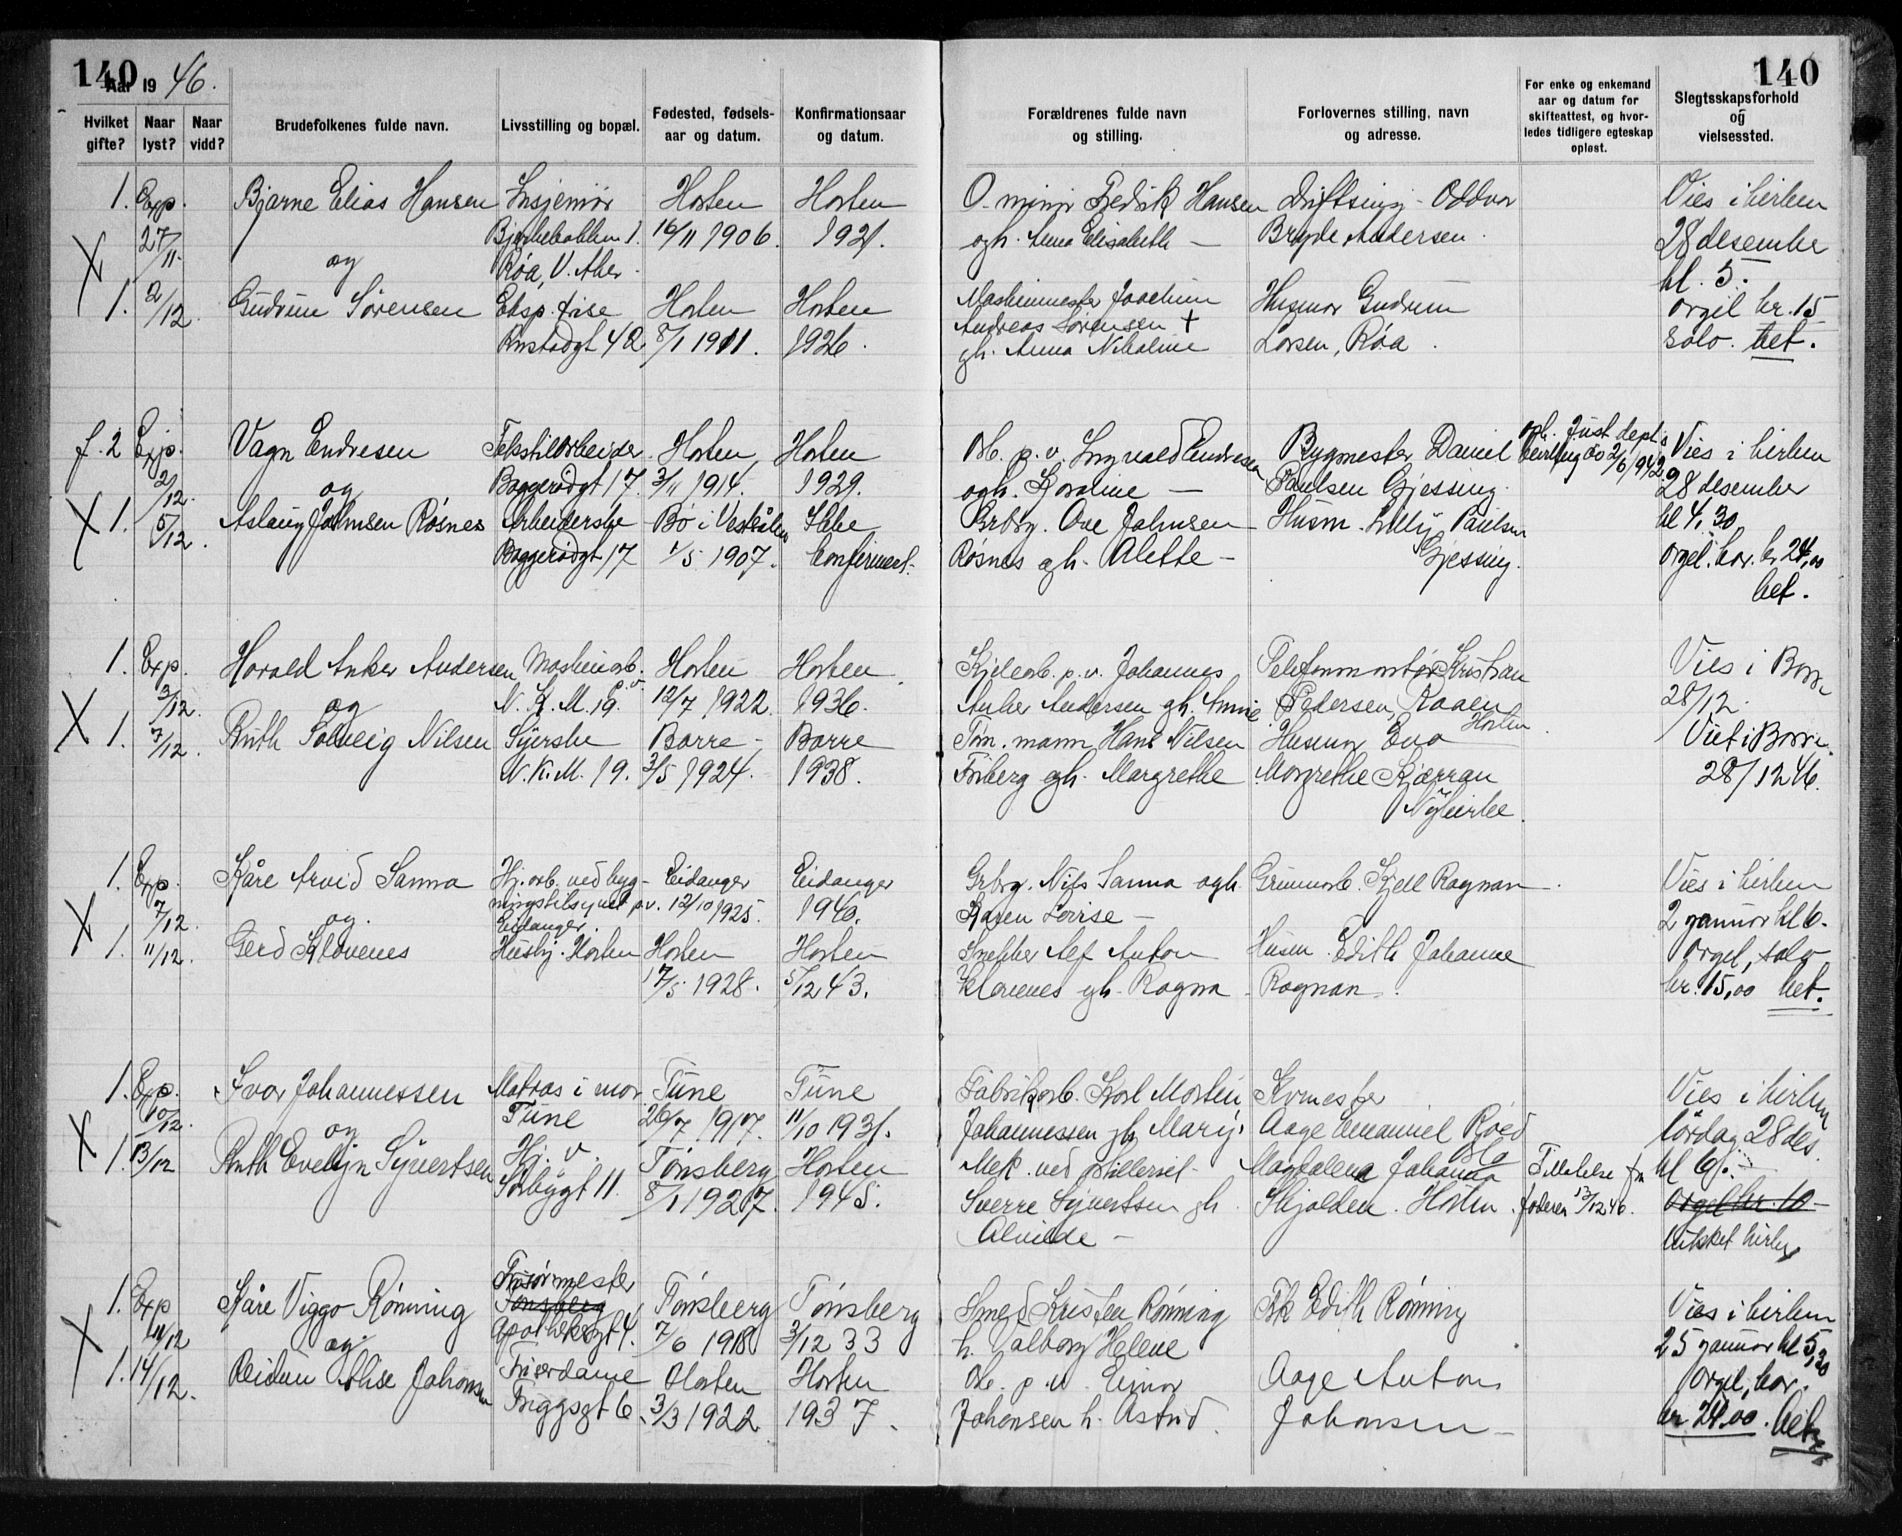 140
Aar 19 46.
140
Hvilket gifte?
Naar lyst?
Naar vidd?
Brudefolkenes fulde navn.
Livsstilling og bopæl.
Fødested, fødsels-aar og datum.
Konfirmationsaar og datum.
Forældrenes fulde navn og stilling.
Forlovernes stilling, navn og adresse.
For enke og enkemand aar og datum for skifteattest, og hvor-ledes tidligere egteskap opløst.
Slegtsskapsforhold og vielsessted.
1. Exp. Bjarne Elias Hansen Horten Horten Fredrik Hansen Driftsing. Oddvar Vies i kirken
27/11. 16/11 1906. 1921. ogh. Anna Elisabeth — Bryde Andersen. 28 desember
X og Røa, V. Aker. kl. 5.
1. 2/12. Gudrun Sørensen Eksp. frise Horten Horten Maskinmester Joachim Husmor Gudrun orgel kr. 15
Andreas Sørensen +
Rustadgt 42 8/1 1911. 1926. gh. Anna Nikoline Larsen, Røa. solo. bet.
f. 2 Exp. Vagn Endresen Tekstilarbeider Horten Horten Arb. p. v. Ingvald Endresen Bygmester Daniel Vies i kirken
2/12. og Baggerødgt 17. 3/11 1914. 1929. ogh. Karoline — Paulsen Gjessing. bevilling av 2/6 1942. 28 desember
X 1. 5/12. Aslaug Johnsen Røsnes Arbeiderske Bø i Vesterålen Ikke Grbr. Ove Johnsen Husm. Lilly Paulsen kl 4,30
Baggerødgt 17 1/5 1907. konfirmert. Røsnes gh. Alette — Gjessing. Orgel. kor. kr 24,00
bet.
1. Exp. Harald Anker Andersen Maskinarb. p.v. Horten Horten Kjelearb. p. v. Johannes Telefonmontør Kristian Vies i Borre
3/12. og N. K. M. 19. 12/7 1922. 1936. Anker Andersen gh. Pedersen, Raaen Horten 28/12.
X 1. 7/12. Ruth Solveig Nilsen Syerske Borre Borre Tøm. mann Hans Nilsen Husmor Eva Viet i Borre
N. K. M. 19. 3/5 1924. 1938. gh. Margrethe Margrethe Kjærran 28/12 46.
Nykirke.
1. Exp. Kåre Arvid Sanna Hj. arb. ved byg- Eidanger Eidanger Grbr. Nils Sanna ogh. Kjell Ragnar Vies i kirken
7/12. og. ningstilsynet p.v. 12/10 1925. 1940. Karen Lovise — 2 januar kl 6.
X Eidanger
1. 11/12. Gerd Klovenes Husbj. Horten Horten Horten Snekker Alf Anton Husm. Edith Johanne Orgel, solo
17/5 1928. 5/12 43. Klovenes gh. Ragna Ragnar. kr. 15,00 bet.
1. Exp. Ivar Johannessen Matros i mar. Tune Tune Fabrikarb. Karl Martin Kvmester Vies i kirken
10/12. og Tune 26/7 1917. 11/10 1931. Johannessen gh. Mary. Aage Emanuel lørdag 28 des.
X 1. 13/12 Ruth Evelyn Syvertsen Hj. v. Tønsberg Horten Mek. ved Magdalena Johanna Tillatelse fra kl 6.
11. 8/1 1927. 1945. Sverre Syvertsen gh. Skjolden. Horten. faderen 13/12 46. Orgel kr. 10
Alvilde —
1. Exp Kåre Viggo Rønning Frisørmester Tønsberg Tønsberg Smed Kristen Rønning Frk Edith Rønning Vies i kirken
Tønsberg
11/12 og Apotekergt 4. 7/6 1918 3/12 33 h. Valborg Helene 25 januar kl 5,30
X 1. 14/12. Reidun Alise Johansen Frisørdame Horten Horten Arb. p. v. Einar Aage Anton Orgel, kor.
Friggsgt 6. 3/3 1922 1937. Johansen h. Astrid. Johansen — kr 24,00. bet.